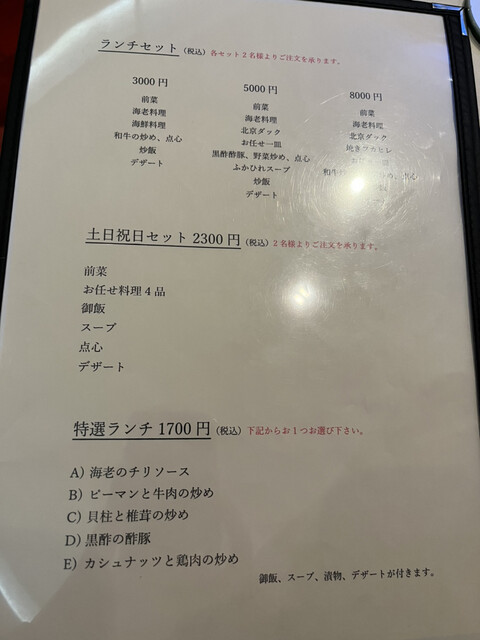 ランチセット (税込) 各セット2名様よりご注文を承ります。
3000円
前菜
海老料理
海鮮料理
和牛の炒め、点心
炒飯
デザート
5000円
前菜
海老料理
北京ダック
お任せ一皿
黒酢酢豚、野菜炒め、点心
ふかひれスープ
炒飯
デザート
8000円
前菜
海老料理
北京ダック
焼きフカヒレ
和牛 炒め、点心
飯
デザート
土日祝日セット 2300円 (税込) 2名様よりご注文を承ります。
前菜
お任せ料理4品
御飯
スープ
点心
デザート
特選ランチ 1700円 (税込) 下記からお1つお選び下さい。
A) 海老のチリソース
B) ピーマンと牛肉の炒め
C) 貝柱と椎茸の炒め
D) 黒酢の酢豚
E) カシュナッツと鶏肉の炒め
御飯、スープ、漬物、デザートが付きます。